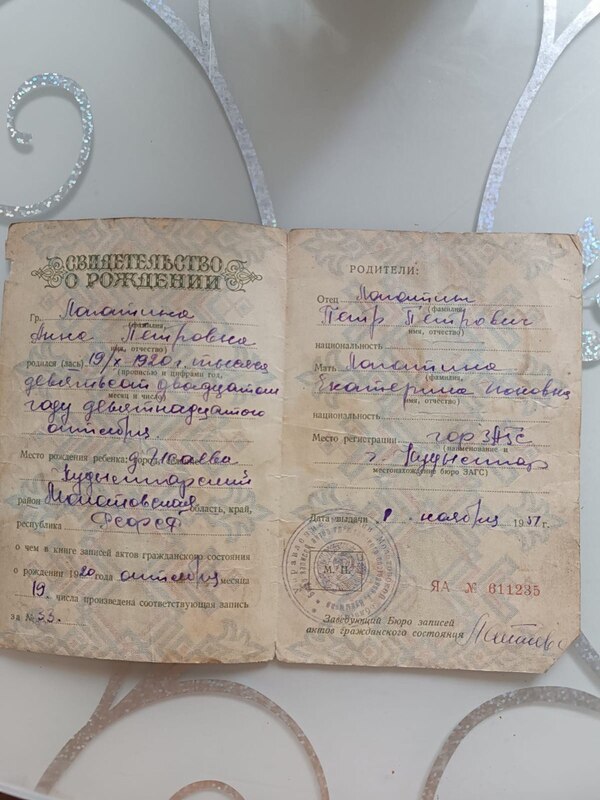 СВИДЕТЕЛЬСТВО
О РОЖДЕНИИ
Гр. Лопатина
(фамилия,
Анна Петровна
имя, отчество)
родился (лась) 19/X 1920 г. тысяча
(прописью и цифрами год,
девятьсот двадцатом
месяц и число)
году девятнадцатого
октября
Место рождения ребенка: город, селение д.
Кудымкарский
район
область, край,
республика РСФСР
о чем в книге записей актов гражданского состояния
о рождении 1920 года октября месяца
19 числа произведена соответствующая запись
за № 33.
РОДИТЕЛИ:
Отец Лопатин
(фамилия,
Петр Петрович
имя, отчество)
национальность
Мать Лопатина
(фамилия,
Екатерина
имя, отчество)
национальность
Место регистрации гор ЗАГС
(наименование и
г. Кудымкар
местонахождение бюро ЗАГС)
Дата выдачи ноября 1957 г.
М. П.
ЯА № 611235
Заведующий Бюро записей
актов гражданского состояния